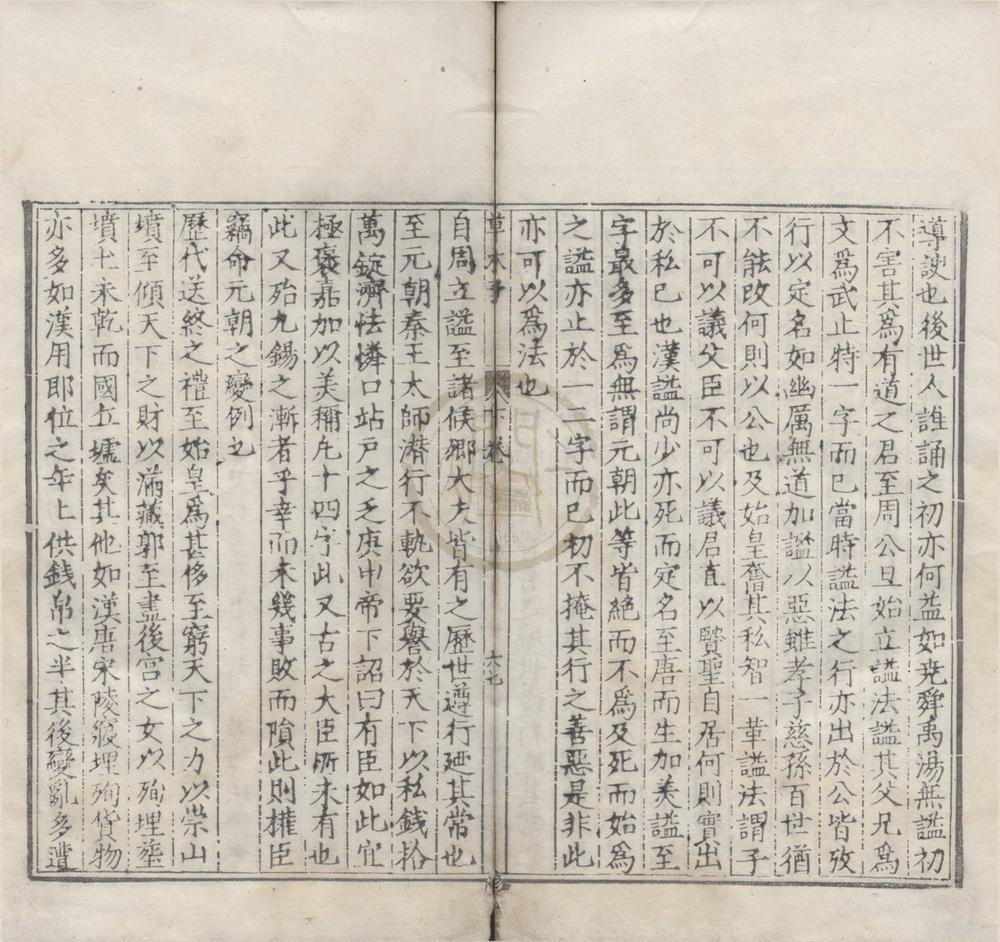 導諛也後世人誰誦之初亦何益如堯舜禹湯無謚初
不害其爲有道之君至周公旦始立謚法謚其父兄爲
文爲武止特一字而已當時謚法之行亦出於公皆攷
行以定名如幽厲無道加謚以惡雖孝子慈孫百世猶
不能改何則以公也及始皇奮其私智一革謚法謂子
不可以議父臣不可以議君直以賢聖自居何則實出
於私已也漢謚尚少亦死而定名至唐而生加美謚至
字最多至爲無謂元朝此等皆絕而不爲及死而始爲
之謚亦止於一二字而已初不掩其行之善惡是非此
亦可以爲法也
草木子 下卷 六七
自周立謚至諸侯鄉大夫皆有之歷世遵行廼其常也
至元朝秦王太師潛行不軌欲要譽於天下以私錢拾
萬錠濟怯憐口站戶之乏庚申帝下詔曰有臣如此宜
極褒嘉加以美稱凡十四字此又古之大臣所未有也
此又殆九錫之漸者乎幸而未幾事敗而隕此則權臣
竊命元朝之變例也
歷代送終之禮至始皇爲甚侈至窮天下之力以崇山
墳至傾天下之財以滿藏郭至盡後宮之女以殉埋塟
墳土未乾而國丘墟矣其他如漢唐宋陵寢埋殉貨物
亦多如漢用即位之年上供錢帛之半其後變亂多遭